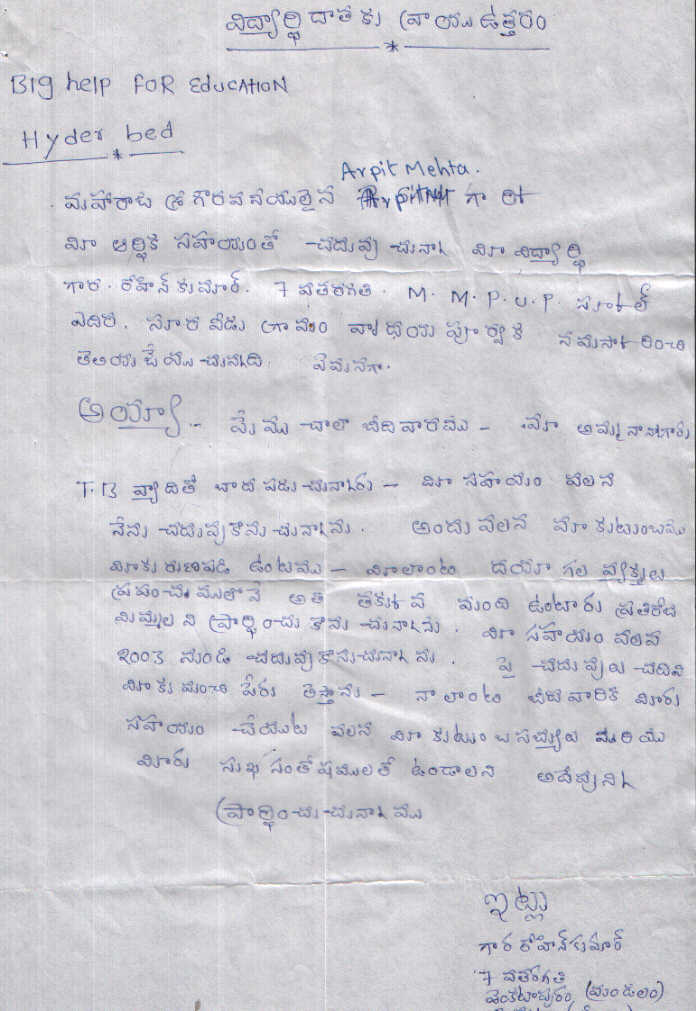 విద్యార్థి దాతకు వ్రాయు ఉత్తరం
BIg help FOR EducATION
Hyder bed
Arpit Mehta.
మహారాజ శ్రీ గౌరవనీయులైన గారికి
మీ ఆర్థిక సహాయంతో చదువు చున్న మీ విద్యార్థి
గార. రోహిన్ కుమార్. 7 వ తరగతి. M. M. P. U. P. స్కూల్
ఎదిర. నూగూరు గ్రామం హృదయ పూర్వక నమస్కరించి
తెలియ చేయు చున్నది. ఏమనగా.
అయ్యా.. మేము చాలా బీదవారము - మా అమ్మ నాన్నగారు
T.B వ్యాదితో బాద పడు చున్నారు - మీ సహాయం వలన
నేను చదువు కొను చున్నాను. అందు వలన మా కుటుంబము
మీకు రుణపడి ఉంటము - మీలాంటి దయా గల వ్యక్తులు
ప్రపంచములోనే అతి తక్కువ మంది ఉంటారు ప్రతిరోజు
మిమ్మల ని ప్రార్థించు కొను చున్నాను. మీ సహాయం వలన
2003 నుండి చదువు కొనుచున్నాను. పై చదువులు చదివి
మీకు మంచి పేరు తెస్తాను - నా లాంటి బీద వారికి మీరు
సహాయం చేయుట వలన మీ కుటుంబ సభ్యులు మరియు
మీరు సుఖ సంతోషములతో ఉండాలని ఆదేవుని
ప్రార్థించు చున్నాము
ఇట్లు
గార రోహిన్ కుమార్
7 వ తరగతి
వెంకటాపురం (మండలం)